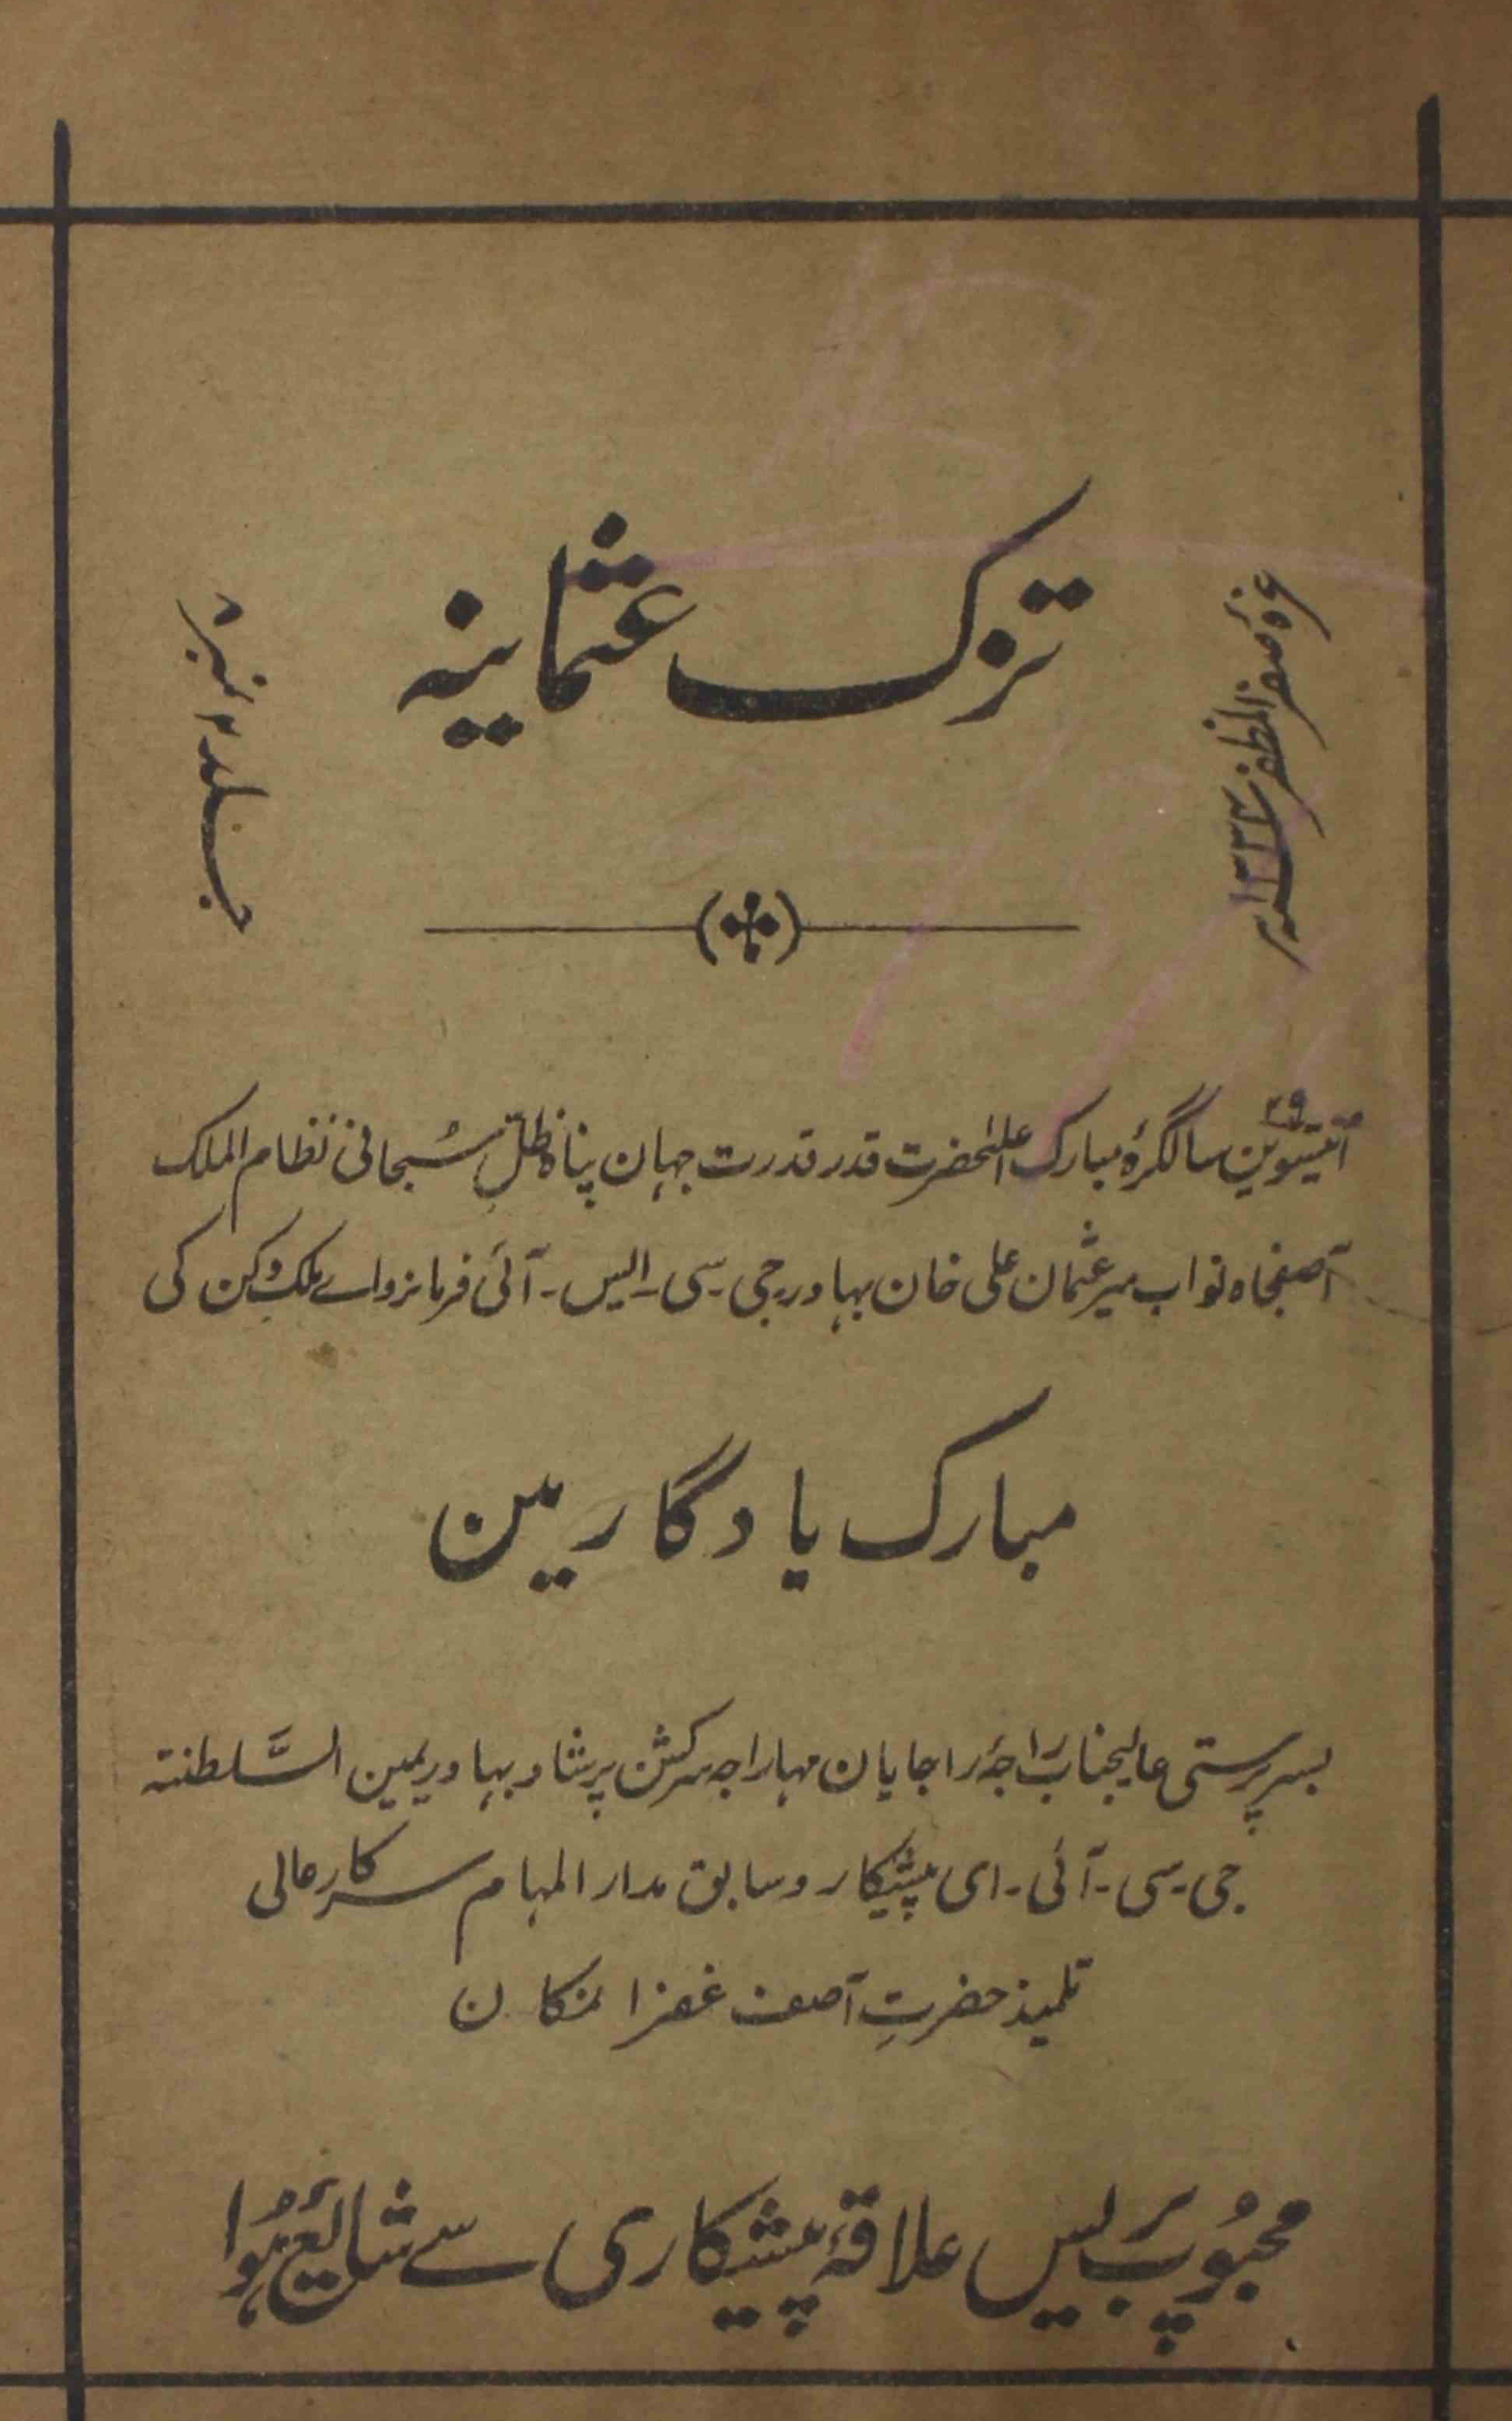 تزک عثمانیہ
غرہ صفر المظفر ۱۳۳۲ سنہ
جلد ۳ نمبر ۸
انتیسوین ۲۹ سالگرۂ مبارک اعلٰحضرت قدر قدرت جہان پناہ ظلِّ سُبحانی نظام الملک
آصفجاہ نواب میر عثمان علی خان بہادر جی ۔ سی ۔ ایس ۔ آئی فرمانروائے ملک دکن کی
مبارک یادگار مین
بسرپرستی عالیجناب راجۂ راجایان مہاراجہ سر کشن پرشاد بہادر یمین السَّلطنتہ
جی ۔ سی ۔ آئی ۔ ای پیشکار و سابق مدار المہام سرکار عالی
تلمیذ حضرتِ آصف غفران مکان
محبُوب پریس علاقۂ پیشکاری سے شایع ہُوا